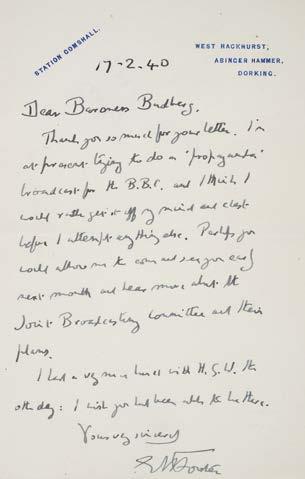 STATION GOMSHALL.
WEST HACKHURST,
ABINGER HAMMER,
DORKING.
17-2-40
Dear Baroness Budberg,
Thank you so much for your letter. I'm
at present trying to do a 'propaganda'
broadcast for the B.B.C. and I think I
would rather get it off my mind and chest
before I attempt anything else. Perhaps you
would allow me to come and see you early
next month and hear more about the
Joint Broadcasting Committee and their
plans.
I had a very nice lunch with H.G.W. the
other day: I wish you had been able to be there.
Yours very sincerely
EMForster